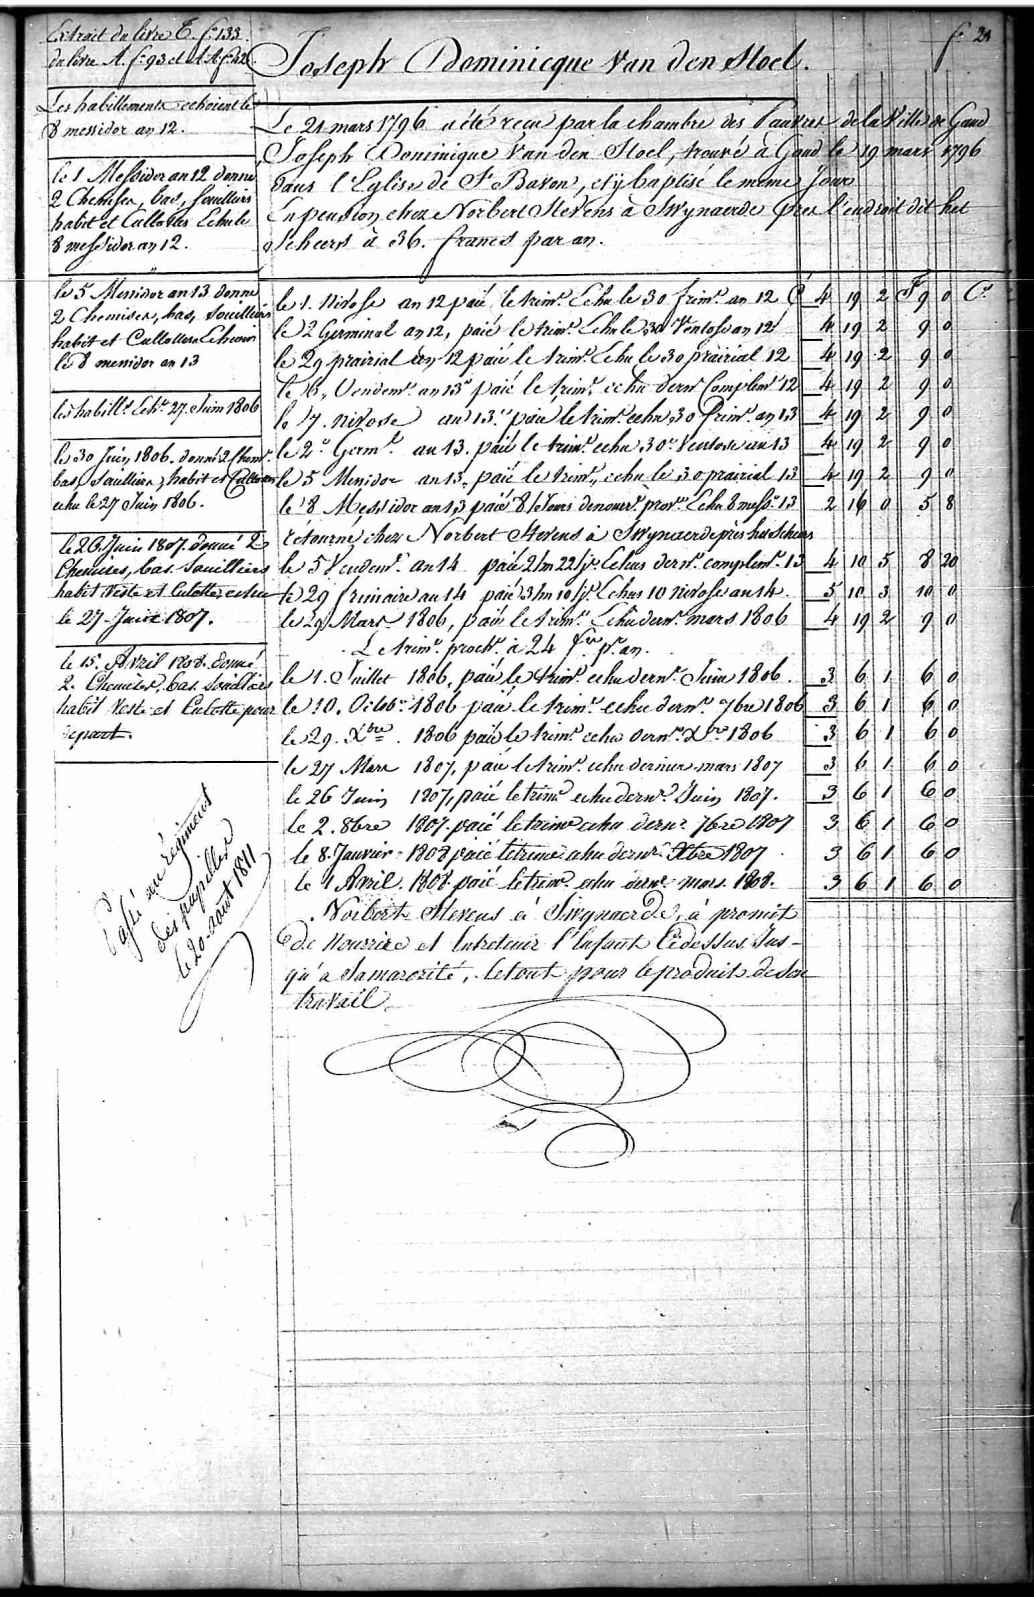 Extrait du livre C. fº 133.
du livre A. fº 93 et
fº 21
Joseph Dominicque Van den Stoel.
Les habillements echoient le
8 messidor an 12.
le 1 Messidor an 12 donné
2 Chemises, bas, Souilliers
habit et Cullottes Echu le
8 messidor an 12.
le 5 Messidor an 13 donné
2 Chemises, bas, Souilliers
habit et Cullottes Echeant
le 8 messidor an 13
les habillts Echs 27 Juin 1806
le 30 Juin 1806. donné 2 Chemes
bas Souilliers, habit et Cullottes
echu le 27 Juin 1806.
le 26 Juin 1807. donné 2
Chemises, bas Souilliers
habit Veste et Culotte echu
le 27 Juin 1807.
le 15 Avril 1808. donné
2. Chemises, bas Souilliers
habit Veste et Culotte pour
depart.
Passé au régiment
des pupilles
le 20 août 1811
Le 21 mars 1796 a été reçu par la chambre des Pauvres de la Ville de Gand
Joseph Dominique Van den Stoel, trouvé à Gand le 19 mars 1796
dans l'Eglise de St Bavon, et y baptisé le meme Jour
En pension chez Norbert Stevens à Swynaerde près l'endroit dit het
Scheers à 36. francs par an.
le 1. Nivose an 12 paié le trimc. Echu le 30 frimc. an 12 £ 4 19 2 F 9 0 Cs
le 2 Germinal an 12, paié le trimc. Echu le 30 Ventose an 12 4 19 2 9 0
le 29 prairial an 12 paié le trimc. Echu le 30 prairial 12 4 19 2 9 0
le 16, Vendemc. an 13e paié le trimc. echu dernr Complemc 12 4 19 2 9 0
le 17. nivose an 13.e paié le trimc. echu 30 frimc. an 13 4 19 2 9 0
le 2e Germl an 13. paié le trimc. echu 30e Ventose an 13 4 19 2 9 0
le 5 Messidor an 13, paié le trimc., echu le 30 prairial 13 4 19 2 9 0
le 8 Messidor an 13 paié 8 Jours de nourr. prov. Echu 8 messr 13 2 16 0 5 8
rétourné chez Norbert Stevens à Swynaerde près het Scheers
le 5 Vendemc. an 14 paié 2 m 22 js Echus dernr. complemc. 13 4 10 5 8 20
le 29 frimaire an 14 paié 3 m 10 js Echus 10 nivose an 14. 5 10 3 10 0
le 29 Mars 1806, paié le trimc. Echu dernr. mars 1806 4 19 2 9 0
Le trimc. prochn. à 24 frs pr. an.
le 1. Juillet 1806, paié le trimc. echu dernr. Juin 1806. 3 6 1 6 0
le 10. Octobc 1806 paié le trimc. echu dernr. 7bre 1806 3 6 1 6 0
le 29. Xbre. 1806 paié le trimc. echu dernr. Xbre 1806 3 6 1 6 0
le 27 Mars 1807, paié le trimc. echu dernier mars 1807 3 6 1 6 0
le 26 Juin 1807, paié le trimc echu dernr. Juin 1807. 3 6 1 6 0
le 2. 8bre 1807. paié le trimc echu dernr 7bre 1807 3 6 1 6 0
le 8 Janvier 1808 paié le trimc echu dernr. Xbre 1807 3 6 1 6 0
le 1 Avril. 1808 paié le trimc. echu dernr. mars. 1808. 3 6 1 6 0
Norbert Stevens à Swynaerde, à promit
de Nourrire et Entretenir l'Enfant Cidessus Jus-
qu'a Samarorité, le tout pour le produit de Son
travail.